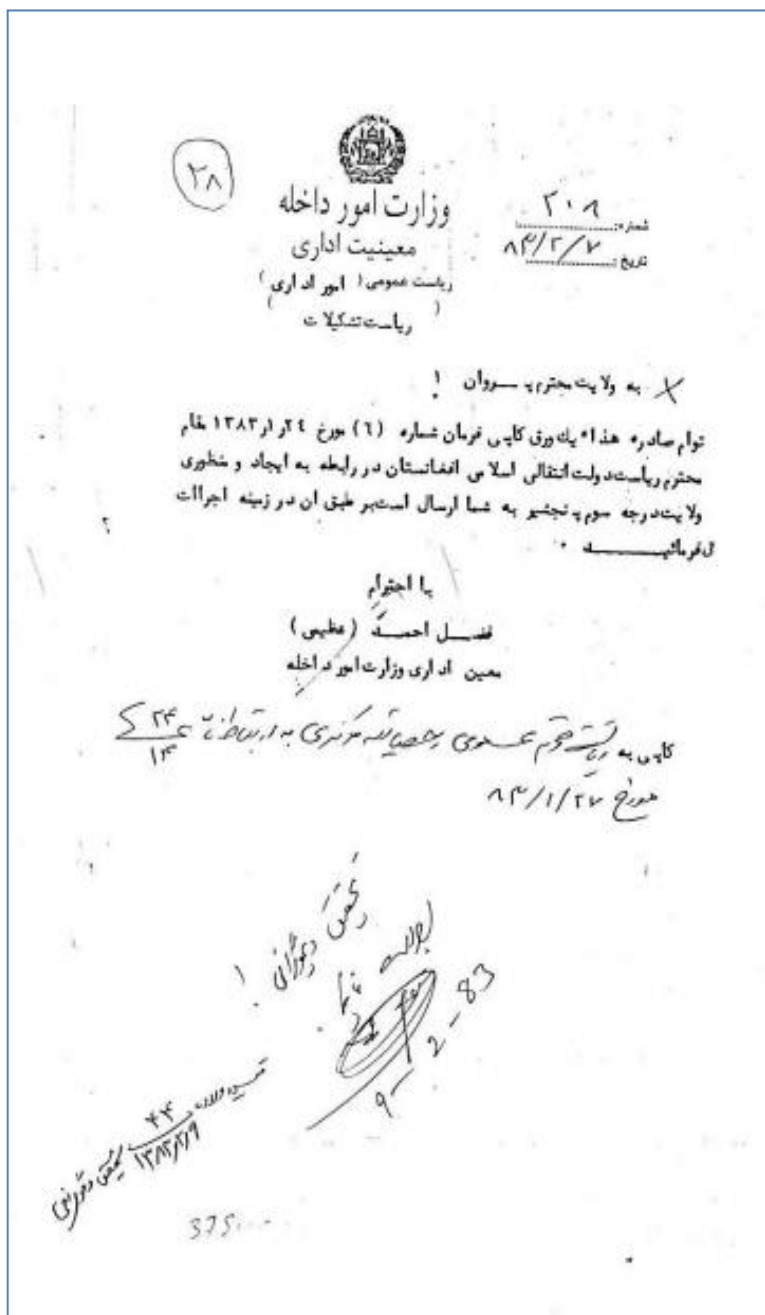 ۲۸
وزارت امور داخله
معینیت اداری
ریاست عمومی ( امور اداری )
( ریاست تشکیلات )
شماره: ۲۰۸
تاریخ: ۸۳/۲/۷
به ولایت محترم پـــروان !
توام صادره هذا یک ورق کاپی فرمان شماره (٦) مورخ ۲٤ر۱ر۱۳۸۳ مقام
محترم ریاست دولت انتقالی اسلامی افغانستان در رابطه به ایجاد و منظوری
ولایت درجه سوم پنجشیر به شما ارسال است بر طبق ان در زمینه اجراات
فرمائیـــــد ۰
با احترام
فضل احمد (عظیمی)
معین اداری وزارت امور داخله
کاپی به ریاست محترم عمومی احصائیه مرکزی به ارتباط
۲۴
۱۴
مورخ ۸۳/۱/۲۷
!
9-2-83
۴۴
۱۳۸۳/۲/۹
375